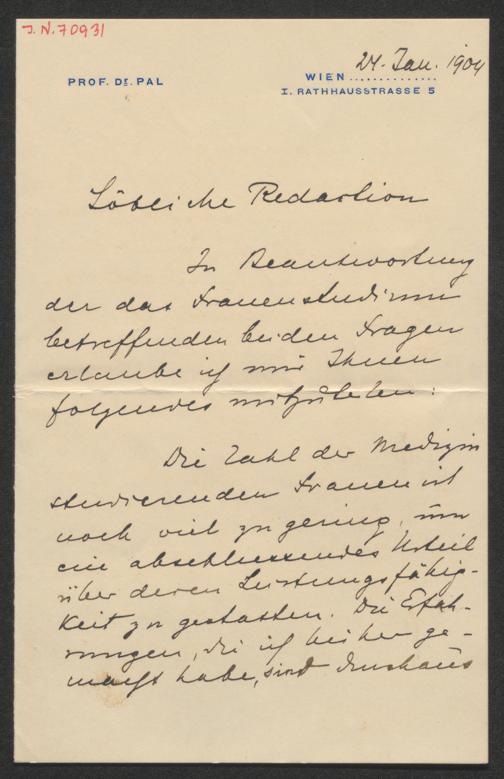 J.N. 70931
24. Jan. 1904
PROF. DR. PAL
WIEN..............
I. RATHHAUSSTRASSE 5
Löbliche Redaction
In Beantwortung
der das Frauenstudium
betreffenden beiden Fragen
erlaube ich mir Ihnen
folgendes mitzuteilen:
Die Zahl der Medizin
studierenden Frauen ist
noch viel zu gering, um
ein abschliessendes Urteil
über deren Leistungsfähig-
keit zu gestatten. Die Erfah-
rungen, die ich bisher ge-
macht habe, sind durchaus